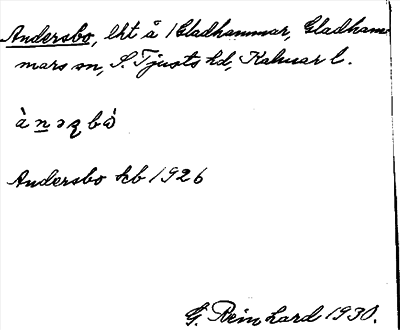 Andersbo, lht å 1 Gladhammar, Gladham-
mars sn, S. Tjusts hd, Kalmar l.
Andersbo kb 1926
G. Reinhard 1930.